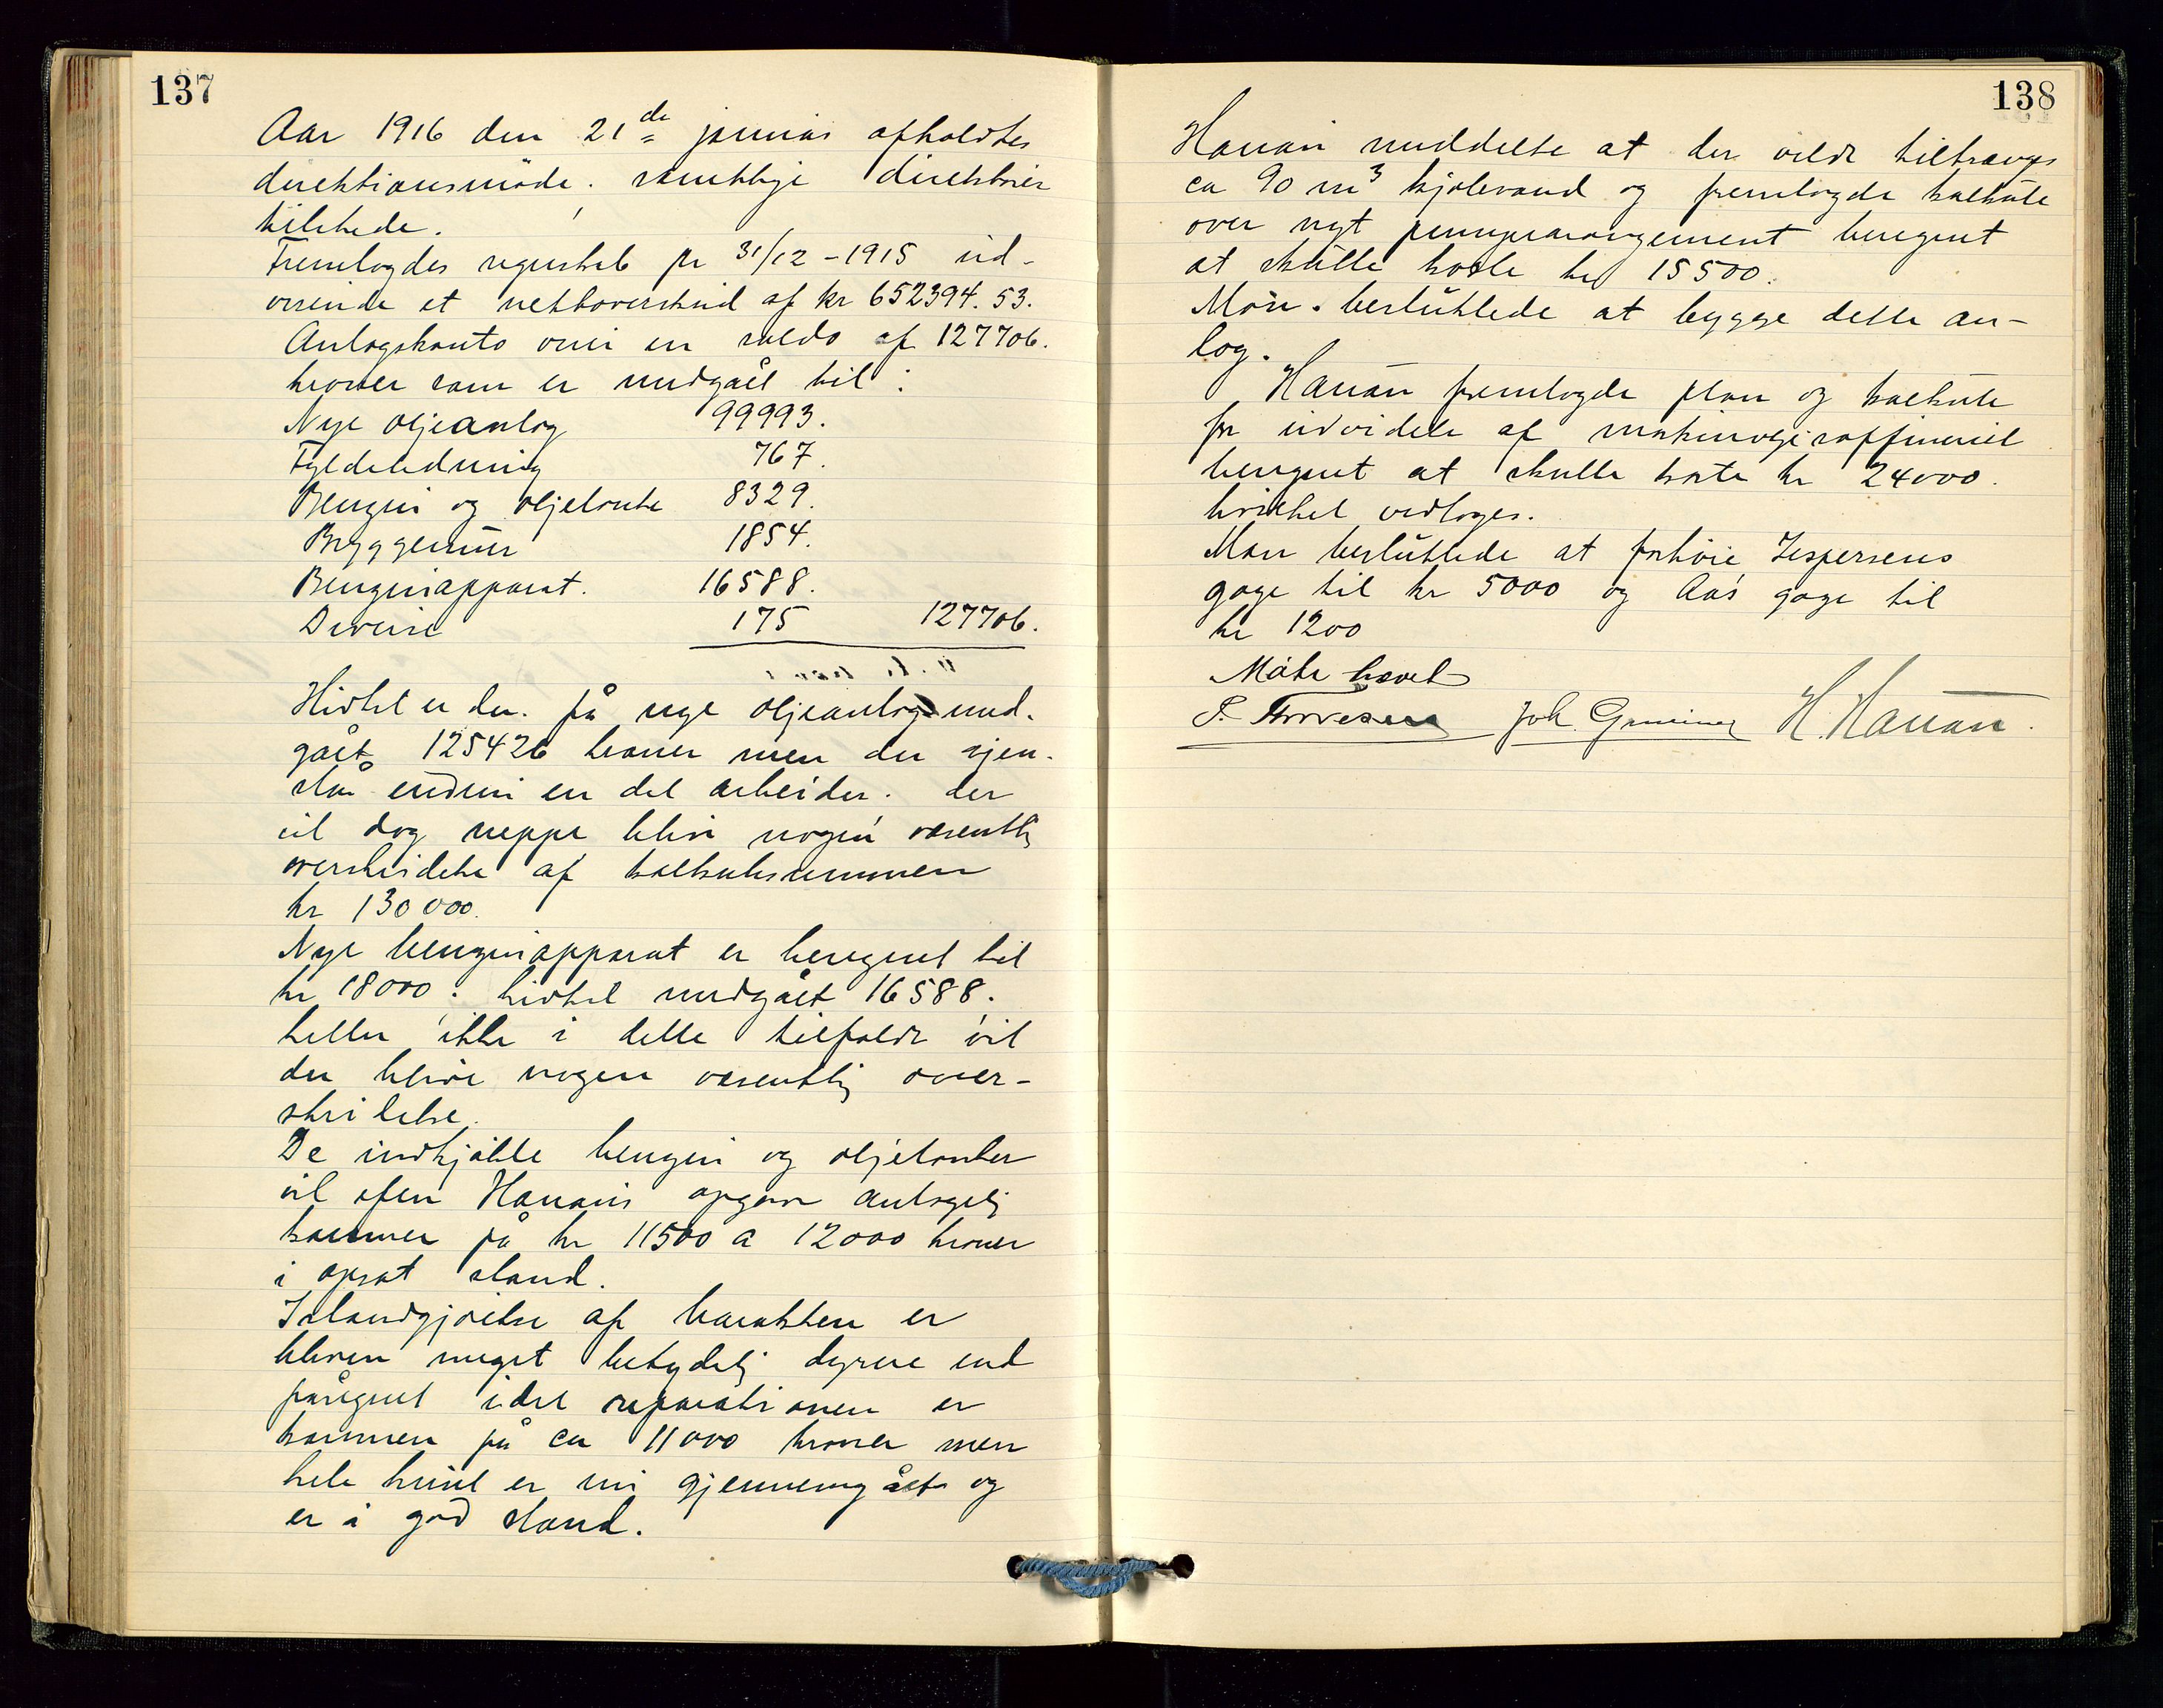 137
Aar 1916 den 21de januar afholdtes
direktionsmöde. samtlige direktörer
tilstede.
Fremlagdes regnskab pr 31/12-1915 ud-
visende et nettooverskud af kr 652394.53.
Anlagskonto viser en saldo af 127706.
kroner som er medgået til:
Nye oljeanlæg 99993.
Fyldeledning 767.
Benzin og oljetanke 8329.
Bryggemur 1854.
Benzinapparat. 16588.
Diverse 175 127706.
Hidtil er der på nye oljeanlæg med-
gået 125426 kroner men der gjen-
står endnu en del arbeider. der
vil dog neppe blive nogen væsentlig
overskridelse af kalkulesummen
kr 130000.
Nye benzinapparat er beregnet til
kr 18000. hidtil medgået 16588.
heller ikke i dette tilfælde vil
der blive nogen væsentlig over-
skridelse.
De indkjöbte benzin og oljetanker
vil efter Hauans opgave antagelig
komme på kr 11500 a 12000 kroner
i opsat stand.
Istandgjörelse af barakken er
bleven meget betydelig dyrere end
påregnet idet reparationen er
kommen på ca 11000 kroner men
hele huset er nu gjennemgået og
er i god stand.
138
Hauan meddelte at der vilde tiltrænges
ca 90 m3 kjölevand og fremlagde kalkule
over nyt pumpearrangement beregnet
at skulle koste kr 15500.
Man besluttede at bygge dette an-
læg.
Hauan fremlagde plan og kalkule
for udvidelse af maskinoljeraffineriet
beregnet at skulle koste kr 24000.
hvilket vedtoges.
Man besluttede at forhöie Jespersens
gage til kr 5000 og Aas' gage til
kr 1200
Möte hævet
Joh. H. Hauan.